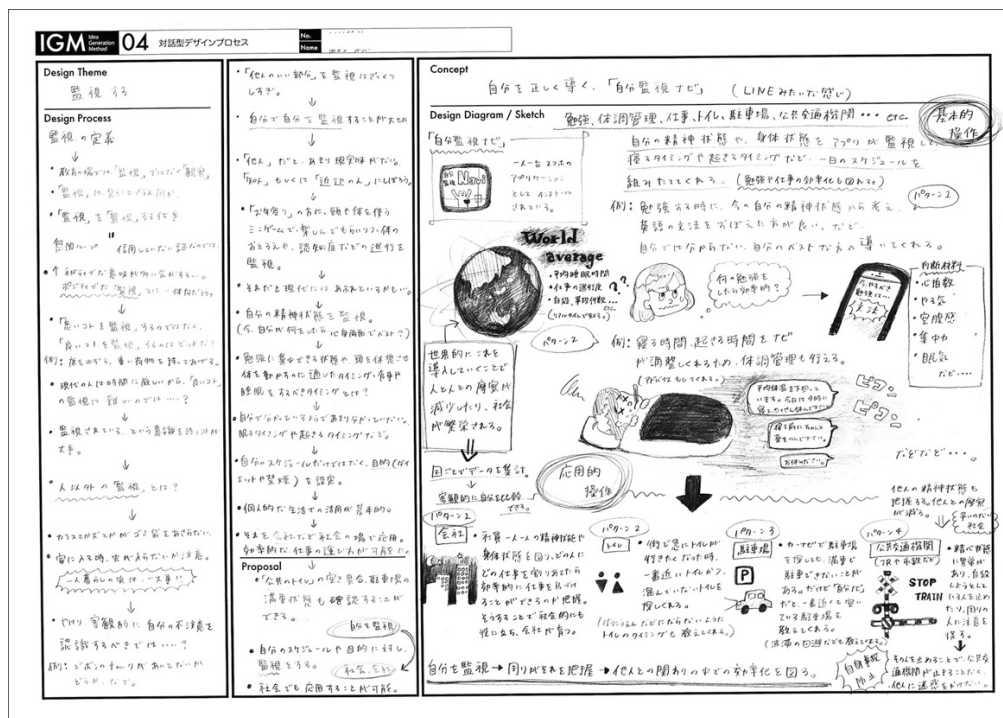 IGM Idea Generation Method 04 対話型デザインプロセス
No.
Name
Design Theme
監視する
Design Process
監視の定義
・教育の場では、「監視」ではなく「観察」
・「監視」を「監視」する仕事
無限ループ
↓
・「悪いコトを監視」するのではなく、
「良いコトを監視」するのはどうだろう？
例：席をゆずる、重い荷物を持ってあげる。
↓
・現代の人は時間に厳しいから、「良いコト」
の監視は難しいのでは…？
↓
・監視されている、という意識を持つコトが
大事。
↓
・人以外の監視、とは？
↓
・カラスとかネコとかがゴミ袋をあさらない。
・家に入る時、虫が入らないか注意。
一人暮らしの虫は、一大事!!
↓
・やはり客観的に自分の不注意を
認識するべきでは…？
例：ズボンのチャックがあいてないか
どうか、など。
・「他人のいい部分」を監視はざっくり
しすぎ。
↓
・自分で自分を監視することが大切
↓
・「他人」だと、あまり現実味がない。
「知人」もしくは「近辺の人」にしぼろう。
↓
・「お年寄り」の為に、頭や体を使う
ミニゲームで、楽しんでもらいつつ体の
おとろえや、認知症などの進行を
監視。
↓
・それだと現代にはあふれているかもしれない。
↓
・自分の精神状態を監視。
(今、自分が何をしたら心身両面でベスト？)
↓
・勉強に集中できる状態や頭を休ませ
体を動かすのに適したタイミング・食事や
睡眠をするべきタイミングとは？
↓
・自分で分かっているようであまり分かっていない、
眠るタイミングや起きるタイミングなど。
↓
・自分のスケジュールだけではなく、目的(ダイ
エットや禁煙)を設定。
↓
・個人的な生活での活用が基本的。
↓
・それを会社など社会の場で応用。
効率的な仕事の進め方が可能に。
Proposal
・「公共のトイレ」の空き具合、駐車場の
満車状態も確認することが
できる…。
自分を監視
・自分のスケジュールや目的に対し、
監視をする。
社会、会社
・社会でも応用することが可能。
Concept
自分を正しく導く、「自分監視ナビ」 (LINEみたいな感じ)
Design Diagram / Sketch
勉強、体調管理、仕事、トイレ、駐車場、公共交通機関… etc.
基本的操作
「自分監視ナビ」
自分監視 Navi
一人一台 スマホの
アプリケーション
として インストール
されている。
自分の精神状態や、身体状態をアプリが監視して、
寝るタイミングや起きるタイミングなど、一日のスケジュールを
組みたててくれる。(勉強や仕事の効率化も図れる。)
パターン1
例：勉強する時に、今の自分の精神状態から考え、
英語の文法をおぼえた方が良い、など、
自分では分からない、自分のベストな方へ導いてくれる。
World average
・平均睡眠時間
・仕事の進行度
・自殺、事故件数…
etc.
(リアルタイムで見れる。)
何の勉強を
したら効率的？
今、やるべき
勉強は…
文法
判断材料
・心拍数
・やる気
・空腹感
・集中力
・眠気
など…。
パターン2
例：寝る時間、起きる時間をナビ
が調整してくれるため、体調管理も行える。
(アドバイスもしてくれる。)
お休みなさい。
ピコン
ピコン
などなど…。
世界的にこれを
導入していくことで
人と人との摩擦が
減少したり、社会
が繁栄される。
国ごとでデータを集計。
客観的に自分を比較
できる。
応用的操作
他人の精神状態も
把握する。他人との摩擦
が減る。
争いのない社会
パターン1
会社
・社員一人一人の精神状態や
身体状態を図り、どの人に
どの仕事を割りあてたら
効率的に仕事を片づけ
ることができるのか把握。
そうすることで社会的にも
役に立ち、会社が育つ。
パターン2
トイレ
・街で急にトイレが
行きたくなった時、
一番近いトイレかつ、
混んでいないトイレを
探してくれる。
トイレのタイミングも教えてくれる。)
パターン3
駐車場
P
・カーナビで駐車場
を探しても、満車で
駐車できないことが
ある。だけど「自分ナビ」
だと、一番近くて空い
ている駐車場を
教えてくれる。
(渋滞の回避なども教えてくれる。)
パターン4
公共交通機関
(JRや市電など)
STOP
TRAIN
・精神状態
に異常が
あり、自殺
しようとして
いる人を止め
たり、周りの
人に注意を
促す。
自殺防止
それを止めることで、公共交
通機関が止まることなく、
他人に迷惑をかけない。
自分を監視 → 周りがそれを把握 → 他人との関わりの中での効率化を図る。